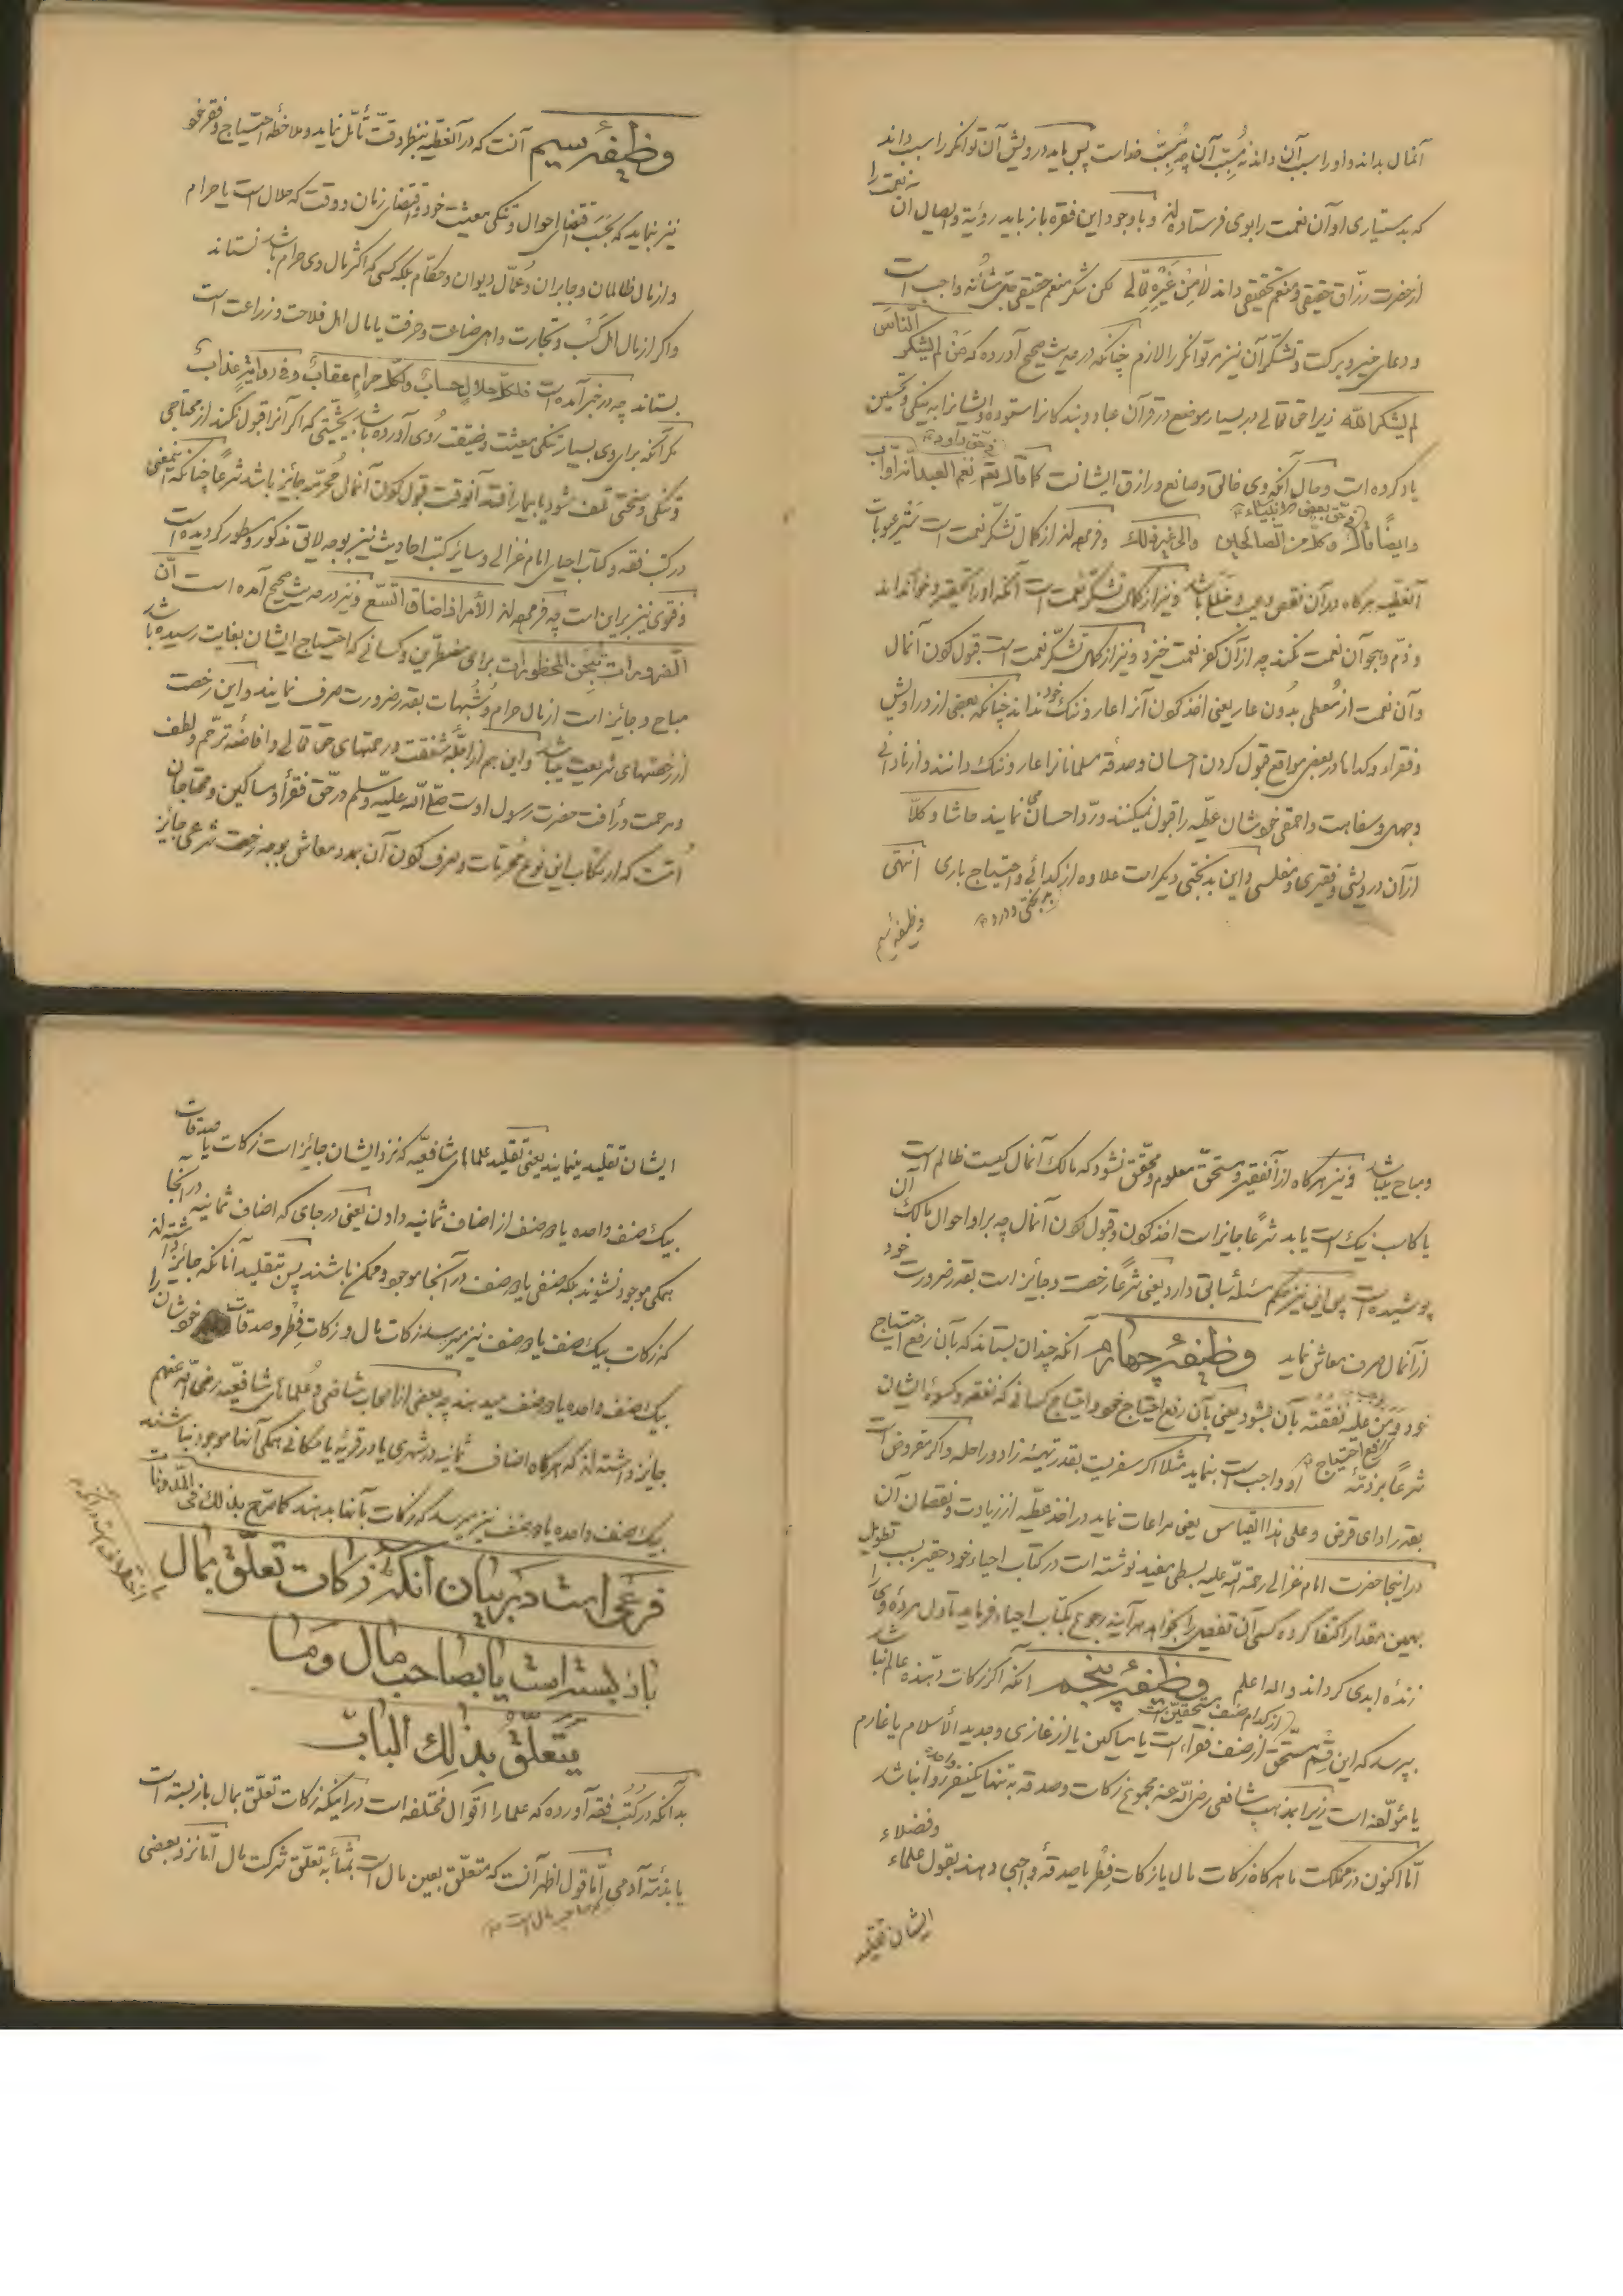 آنمال بداند و او را سبب آن داند نه مُسبِّب آن چه مُسبِّب خداست پس باید درویش آن توانگر را سبب داند
که بدستیاری او آن نعمت را بوی فرستاده‌اند و با وجود این فقره باز باید رؤیة و ایصال آن نعمت را
از حضرت رزّاق حقیقی و منعم تحقیقی داند لا مِن غَیرِهِ تعالی لکن شکر منعم حقیقی جلّ شأنه واجب است
و دعای خیر و برکت و تشکّر آن نیز بر توانگر را لازم چنانکه در حدیث صحیح آورده که مَن لم یشکر النّاسَ
لم یشکر اللّه زیرا حق تعالی در بسیار موضع در قرآن عباد و بندگانرا ستوده و ایشانرا به نیکی و تحسین
یاد کرده است و حال آنکه وی خالق و صانع و رازق ایشانست کما قال تع نِعم العبد انّه اوّاب
فی حق داود
فی حق بعض الانبیاء
وایضًا قال وکلٌّ من الصّالحین والی غیر ذلک و فرموده‌اند از کمال تشکّر نعمت است ستر عیوبات
آنعطیه هرگاه در آن نقص و عیب و خلل باشد و نیز از کمال تشکّر نعمت است آنکه او را تحقیر و خوار نداند
و ذمّ و هجو آن نعمت نکند چه از آن کفر نعمت خیزد و نیز از کمال تشکّر نعمت است قبول کردن آنمال
و آن نعمت از مُعطی بدون عار یعنی اخذ کردن آنرا عار و ننگ خود نداند چنانکه بعضی از دراویش
و فقراء و گدایان در بعض مواقع قبول کردن احسان و صدقه مسلمانانرا عار و ننگ دانند و از نادانی
و جهل و سفاهت و احمقی خوشان عطیّه را قبول نمیکنند و ردّ احسان می نمایند حاشا و کلّا
از آن درویشی و فقیری و مفلسی و این بدبختی دیگر است علاوه از گدائی و احتیاج باری انتهی
وظیفهٔ سیم
وظیفهٔ سیم آنست که در آنعطیه بنظر دقّت تأمّل نماید و ملاحظه احتیاج و فقر خود
نیز نماید که بحَسَب اقتضای احوال و تنگی معیشت خود و اقتضای زمان و وقت که حلال است یا حرام
و از مال ظالمان و جابران و عُمّال دیوان و حکّام بلکه کسی که اکثر مال وی حرام باشد نستاند
و اگر از مال اهل کَسْب و تجارت و اهل صناعت و حرفت یا مال اهل فلاحت و زراعت است
بستاند چه در خبر آمده است فلکلّ حلالٍ حسابٌ و لکلّ حرامٍ عقابٌ و فی روایةٍ عذابٌ
مگر آنکه برای وی بسیار تنگی معیشت و ضیّقت روی آورده باشد بحیثیتی که اگر آنرا قبول نکند از محتاجی
و تنگی و سختی تلف شود یا بیمار افتد آنوقت قبول کردن آنمال مُحرّمه جائز باشد شرعاً چنانکه اینمعنی
در کتب فقه و کتاب احیای امام غزالی و سایر کتب احادیث نیز بوجه لایق مذکور و مسطور گردیده است
و فتوی نیز بر این است چه فرموده‌اند الأمر اذا ضاق اتّسع و نیز در حدیث صحیح آمده است أنّ
الضرورات تُبیحن المحظورات برای مضطرّین و کسانی که احتیاج ایشان بغایت رسیده باشد
مباح و جایز است از مال حرام و شُبهات بقدر ضرورت صرف نمایند و این رخصت
از رخصتهای شریعت میباشد و این هم از جمله شفقت و رحمتهای حق تعالی و افاضه ترحّم و لطف
و مرحمت و رأفت حضرت رسول اوست صلّی اللّه علیه وسلّم در حقّ فقراء و مساکین و محتاجان
اُمّت که ارتکاب این نوع محرّمات و صرف کردن آن بمدد معاش بوجه رخصت شرعی جایز
و مباح میباشد و نیز هرگاه از آنفقیر و مستحقّ معلوم و محقّق نشود که مالک آنمال کیست ظالم است
یا کاسب نیک است یا بد شرعًا جایز است اخذ کردن و قبول کردن آنمال چه بر او احوال مالک آن
پوشیده است پس این نیز حکم مسئلهٔ سابق دارد یعنی شرعًا رخصت و جایز است بقدر ضرورت خود
از آنمال صرف معاش نماید وظیفهٔ چهارم آنکه چندان بستاند که بآن رفع احتیاج
خود و مَن علیه نفقته بآن بشود یعنی بآن رفع احتیاج خود و احتیاج کسانی که نفقه و کسوهٔ ایشان
شرعًا بر ذمّهٔ او واجب است بنماید مثلا اگر سفریست بقدر تهیهٔ زاد و راحله و اگر مقروض است
رفع احتیاج
بقدر ادای قرض و علی هذا القیاس یعنی مراعات نماید در اخذ عطیّه از زیادت و نقصان آن
در اینجا حضرت امام غزالی رحمة اللّه علیه بسطی مفید نوشته است در کتاب احیاء خود حقیر بسبب تطویل
بهمین مقدار اکتفا کرده کسی آن تفصیل را بخواهد هرآینه رجوع بکتاب احیاء فرماید تا دل مرده وی را
زنده ابدی گرداند واللّه اعلم وظیفهٔ پنجم آنکه اگر زکات دهنده عالم نباشد
از کدام صنف مستحقّین است
بپرسد که این قِسم مستحق از صنف فقراء است یا مساکین یا از غازی و جدید الأسلام یا غارم
یا مؤلّفه است زیرا بمذهب شافعی رضی اللّه عنه مجموع زکات و صدقه به تنها یکنفر واحد روا نباشد
امّا اکنون در مملکت ما هرگاه زکات مال یا زکات فِطر یا صدقهٔ واجبی دهند بقول علماء و فضلاء
ایشان تقلید
ایشان تقلید مینمایند یعنی تقلید علمای شافعیّه که نزد ایشان جایز است زکات یا صدقات
بیک صنف واحده یا دو صنف از اصناف ثمانیه دادن یعنی در جای که اصناف ثمانیه در آنجا
همگی موجود نشوند بلکه صنفی یا دو صنف در آنجا موجود و ممکن باشند پس بتقلید آنانکه جائز داشته‌اند
که زکات بیک صنف یا دو صنف نیز میرسد زکات مال و زکات فِطر و صدقات خوشان را
بیک صنف واحده یا دو صنف میدهند چه بعضی از اصحاب شافعی و علمای شافعیّه رضی اللّه عنهم
جایز داشته‌اند که هرگاه اصناف ثمانیه در شهری یا در قریهٔ یا مکانی همگی آنها موجود نباشند
بیک صنف واحده یا دو صنف نیز میرسد که زکات بآنها بدهند کما صرّح بذلک فی المدوّنات
فرعی است در بیان آنکه زکات تعلّق بمال
باز بسته است یا بصاحب مال وما
یتعلّق بذلک الباب
بدانکه در کُتُب فقه آورده که علما را اقوال مختلفه است در اینکه زکات تعلّق بمال باز بسته است
یا بذمّهٔ آدمی امّا قول اظهر آنست که متعلّق بعین مال است بمثابه تعلّق شرکت مال امّا نزد بعضی
که صاحب مال است